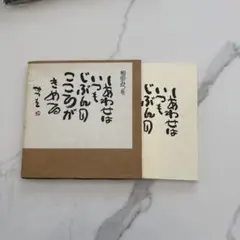 相田みつを
しあわせは
いつも
じぶんの
こころが
きめる
みつを
しあわせは
いつも
じぶんの